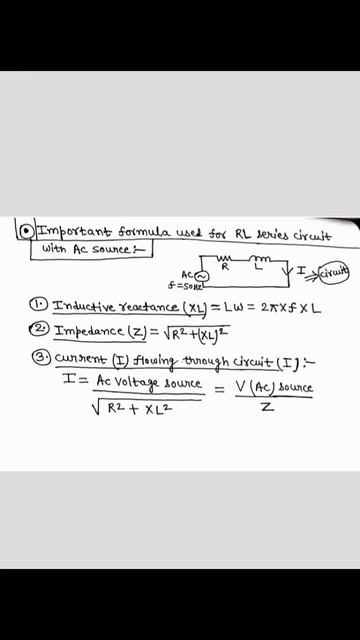 Important formula used for RL series circuit
with AC source:-
R L I ⇒ circuit
AC
f=50Hz
1. Inductive reactance (XL) = Lω = 2π×f×L
2. Impedance (Z) = √R²+(XL)²
3. Current (I) flowing through circuit (I):-
I = AC voltage source / √R² + XL² = V (AC) source / Z